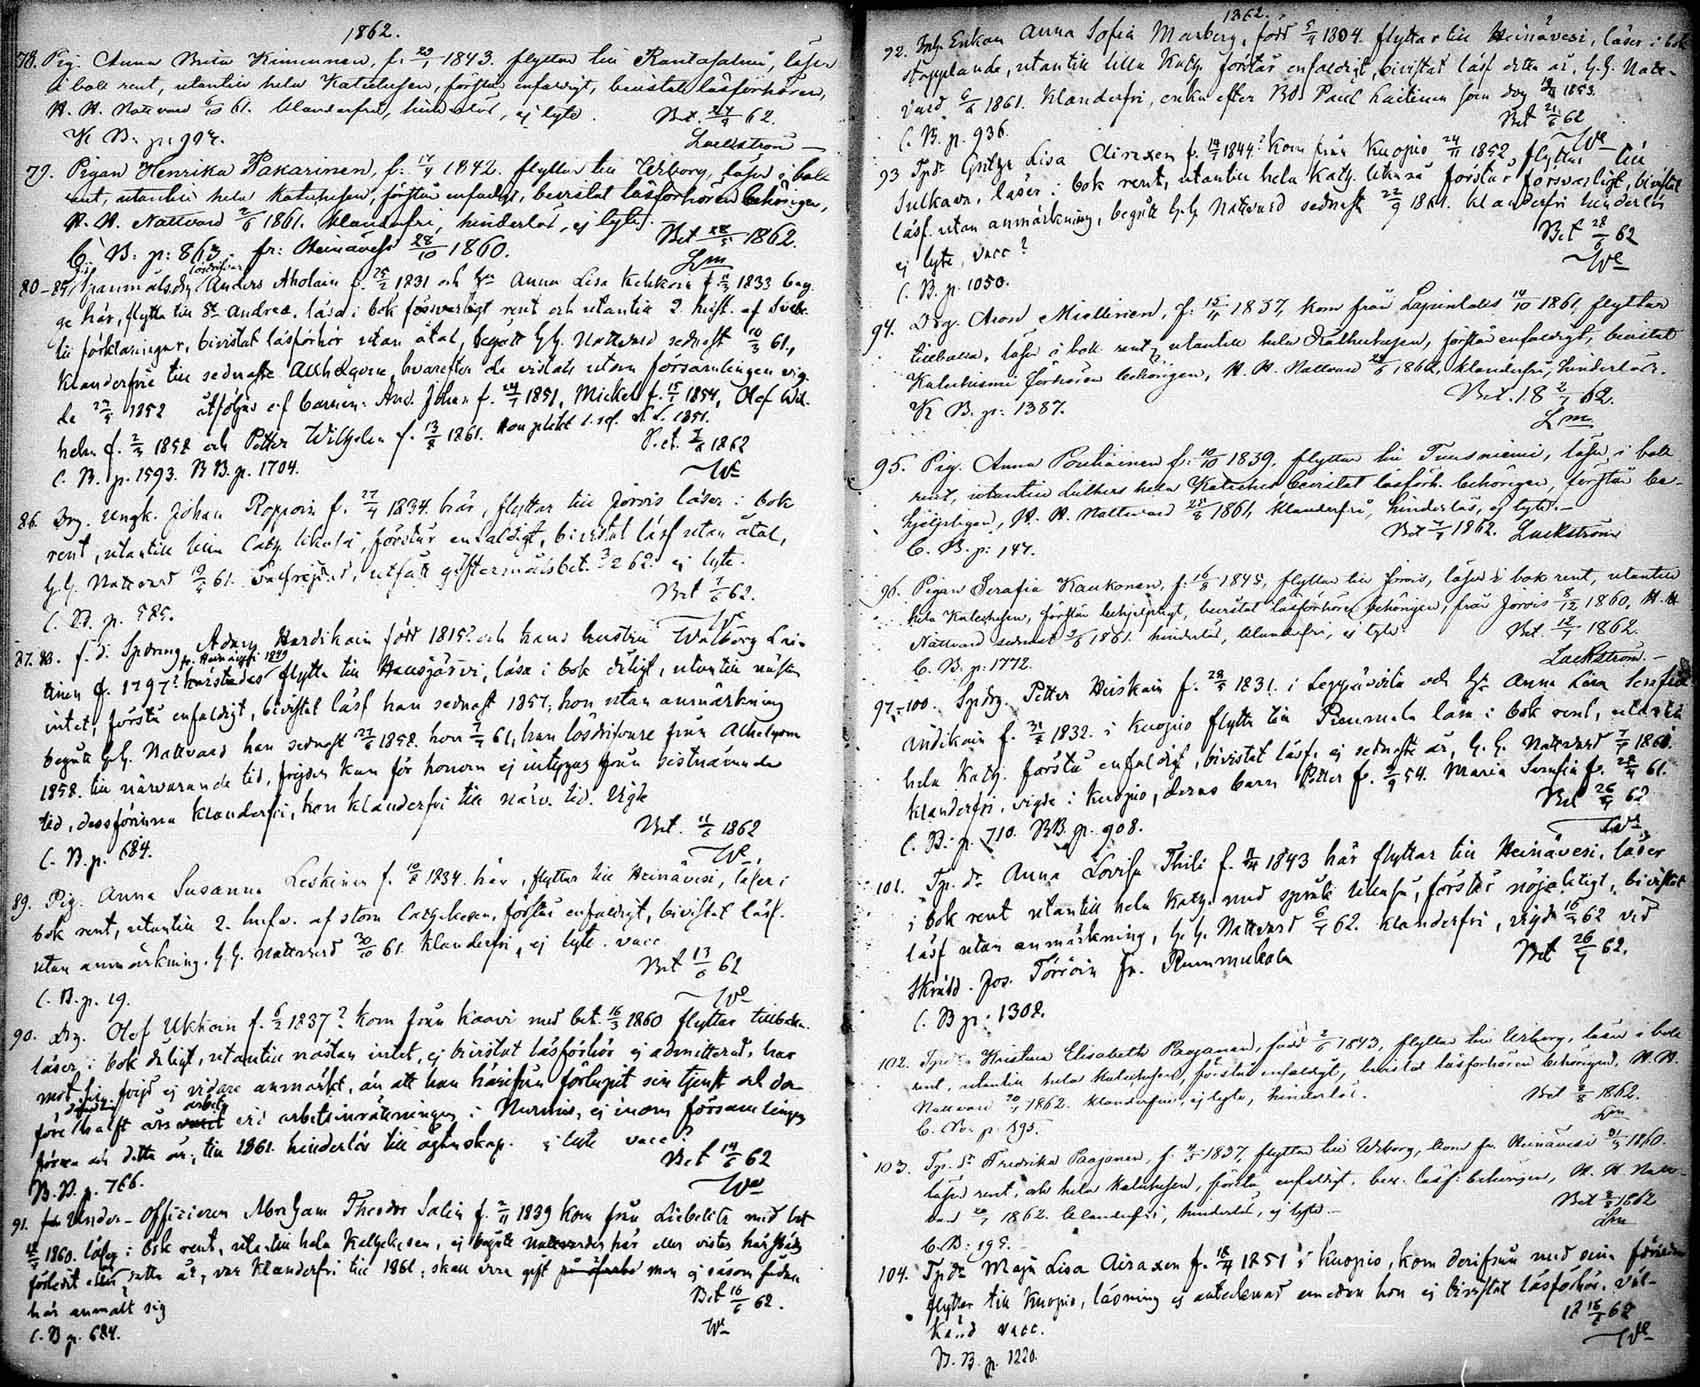 1862.
78. Pig. Anna Brita Kinnunen, f. 29/1 1843. flyttar till Rantasalmi, läser
i bok rent, utantill hela Katechesen, förstår enfaldigt, bevistat läsförhören,
H. H. Nattvard 61. klanderfri, hinderlös, ej lyte. Bet. 62.
K B. p. Lackström
79. Pigan Henrika Pakarinen, f. 17/4 1842. flyttar till Wiborg, läser i bok
rent, utantill hela Katechesen, förstår enfaldigt, bevistat läsförhören behörigen,
H. H. Nattvard 2/6 1861. klanderfri, hinderlös, ej lyte. Bet 28/5 1862.
C. B. p: 863. fr: Heinävesi 28/10 1860. Lm
80-85. Anders Aholain f. 25/2 1831 och Anna Lisa f. 1833 bag-
ge här, flytta till St. Andreæ, läsa i bok försvarligt rent och utantill 2 huft. af
till förklaringar, bivistat läsförhör utan åtal, begått H. H. Nattvard sednast 10/3 61,
klanderfrie till sednaste Allhelgona, hvarefter de vistats utom församlingen vig-
de 1852 åtföljas af barnen And. Johan f. 1851, Mickel f. 15/7 1854, Olof Wil-
helm f. 2/3 1858 och Petter Wilhelm f. 13/8 1861.
C. B. p. 1593. B B. p. 1704. Bet. 1862
86. Drg. Ungk. Johan Roppoin f. 27/7 1834 här, flyttar till Jorois läser i bok
rent, utantill Catg. förstår enfaldigt, bivistat läsf utan åtal,
H. H. Nattvard 61. utfått giftermålsbet. 62. ej lyte.
C. B. p. 585. Bet 62.
87.88. f. d. Spdrng Adam Hardikain född 1815? och hans hustru Walborg Lai-
tinen f. 1797? flytta till Hausjärvi, läsa i bok dåligt, utantill nästan
intet, förstå enfaldigt, bivistat läsf han sednast 1857, hon utan anmärkning
begått H. H. Nattvard han sednast 1858. hon 61, han lösdrifvare från Allhelgona
1858. till närvarande tid, frejden kan för honom ej intygas från sistnämnde
tid, dessförinnan klanderfri, hon klanderfri till närv. tid. Vigde
C. B. p. 684. Bet. 11/6 1862
89. Pig. Anna Susanna Leskinen f. 10/8 1834. här, flyttar till Heinävesi, läser i
bok rent, utantill 2. hufv. af stora Catgchesen, förstår enfaldigt, bivistat läsf.
utan anmärkning. H. H. Nattvard 30/10 61. klanderfri, ej lyte. vacc
C. B. p. 19. Bet 13/6 62
90. Drg. Olof Ukkoin f. 6/2 1837? kom från Kaavi med bet. 16/3 1860 flyttar tillbaka.
läser i bok dåligt, utantill nästan intet, ej bivistat läsförhör ej admitterad, har
mot frejd ej vidare anmärkt, än att han härifrån förlupit sin tjenst och der-
före halft års arbete vid arbetsinrättningen i Nurmis, ej inom församlingen
förrän detta år, till 1861. hinderlös till ägtenskap. ej lyte vacc?
B. B. p. 766. Bet 14/6 62
91. Under-Officieren Abraham Theodor Salin f. 2/11 1839 kom från Libelits med bet
1860. läser i bok rent, utantill hela Katgchesen, ej begått Nattvarden här eller vistas härstädes
förledit eller detta år, var klanderfri till 1861, skall vara gift men ej såsom sådan
här anmält sig Bet 16/6 62.
C. B p. 684.
1862.
92. Enkan Anna Sofia Marberg, född 1804. flyttar till Heinävesi, läser i bok
stapplande, utantill lilla Katg. förstår enfaldigt, bivistat läsf detta år, H. H. Natt-
vard 6/6 1861. klanderfri, enka efter Bds Paul Laitinen som dog 1853.
C. B. p. 936. Bet 21/6 62
93 Greta Lisa Airaxen f. 1844? kom från Kuopio 24/11 1852 flyttar till
Sulkava, läser i bok rent, utantill hela Katg. förstår försvarligt, bivistat
läsf. utan anmärkning, begått H. H. Nattvard sednast 22/9 1861. klanderfri hinderlös
ej lyte, vacc? Bet 28/6 62
C. B. p. 1050.
94. Drg. Aron Miettinen, f. 15/11 1837, kom från Lapinlaks 14/10 1861, flyttar
tillbaka, läser i bok rent, utantill hela Katechesen, förstår enfaldigt, bevistat
Katechismi förhören behörigen, H. H. Nattvard 1862, klanderfri, hinderlös.
K B. p: 1387. Bet. 18 2/7 62. Lm
95. Pig. Anna Pouhiainen f: 10/10 1839, flyttar till Tuusniemi, läser i bok
rent, utantill Luthers hela Kateches bevistat läsförh. behörigen, förstår be-
hjelpligen, H. H. Nattvard 25/8 1861, klanderfri, hinderlös, ej lyte.
C. B. p: 147. Bet 7/7 1862. Lackström
96. Pigan Serafia Kaukonen, f: 16/8 1845, flyttar till Jorois, läser i bok rent, utantill
hela Katechesen, förstår behjelpligt, bevistat läsförhören behörigen, från Jorois 8/12 1860, H. H.
Nattvard sednast 1861. hinderlös, klanderfri, ej lyte. Bet. 12/7 1862.
C. B. p: 1772. Lackström.
97-100. Spdrg. Petter Heiskain f. 28/5 1831. i Leppävirta och Hu Anna Lisa Serafia
Andikain f. 31/8 1832. i Kuopio flytta till Puumala läsa i bok rent, utantill
hela Katg. förstå enfaldigt, bivistat läsf. ej sednaste år, H. H. Nattvard 1860.
klanderfri, vigde i Kuopio, deras barn Petter f. 54. Maria Serafia f. 61.
C. B. p. 710. BB. p. 908. Bet 26/7 62
101. Anna Lovisa Thilé f. 1843 här flyttar till Heinävesi, läser
i bok rent utantill hela Katg. med språk förstår nöjaktigt, bivistat
läsf utan anmärkning, H. H. Nattvard 62. klanderfri, vigd 16/7 62 vid
Skrädd. Jos. Törröin fr. Rummukala Bet 26/7 62.
C. B p: 1308.
102. Kristina Elisabeth Paajanen, född 2/6 1843, flyttar till Wiborg, läser i bok
rent, utantill hela Katechesen, förstår enfaldigt, bevistat läsförhören behörigen, H. H.
Nattvard 20/7 1862. klanderfri, ej lyte, hinderlös. Bet 2/8 1862.
C. B. p. 195. Lm
103. Fredrika Paajanen, f. 1837, flyttar till Wiborg, kom fr. Heinävesi 1860.
läser rent, och hela Katechesen, förstår enfaldigt. bev. läsf. behörigen, H. H. Natt-
vard 20/7 1862. klanderfri, hinderlös, ej lyte. Bet 2/8 1862
C. B. 195. Lm
104. Maja Lisa Airaxen f. 18/4 1851 i Kuopio, kom derifrån med sina föräldrar
flyttar till Kuopio, läsning ej antecknad emedan hon ej bivistat läsförhör, väl-
känd vacc. 12 16/8 62
B. B. p. 1220.